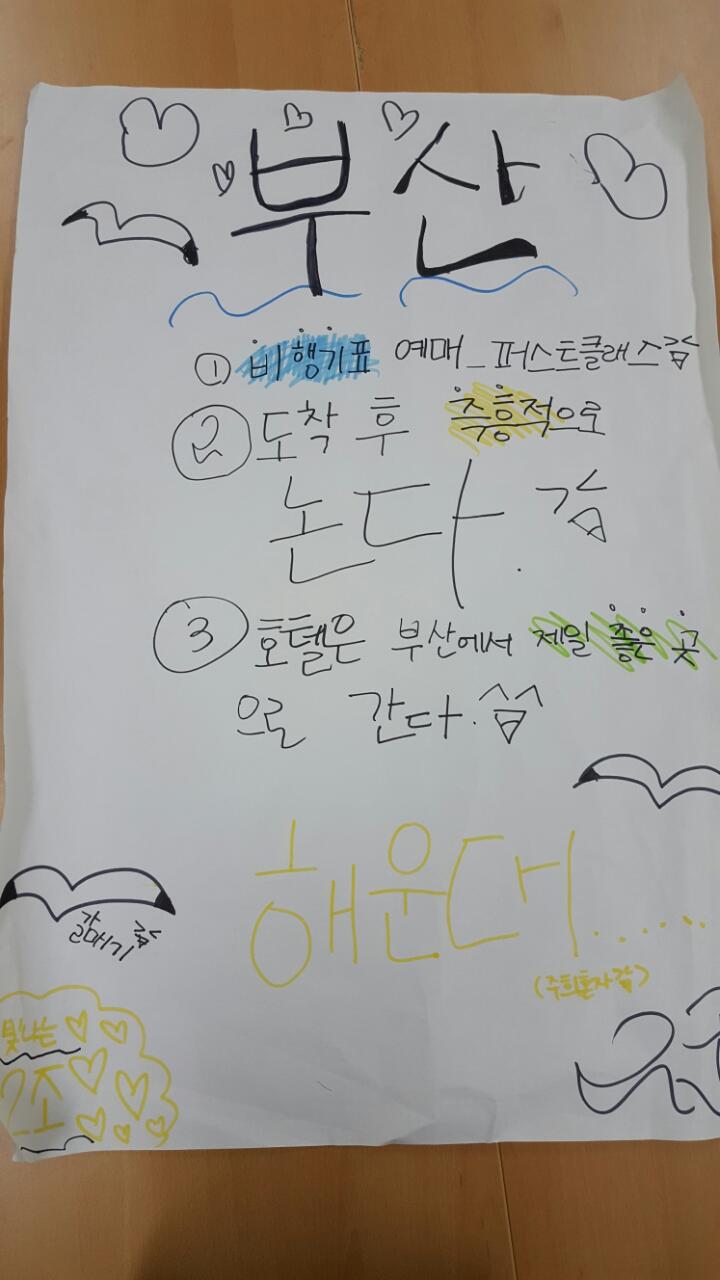 부산
① 비행기표 예매_퍼스트클래스
② 도착 후 즉흥적으로
논다.
③ 호텔은 부산에서 제일 좋은 곳
으로 간다.^^
해운대.....
갈매기
빛나는
2조